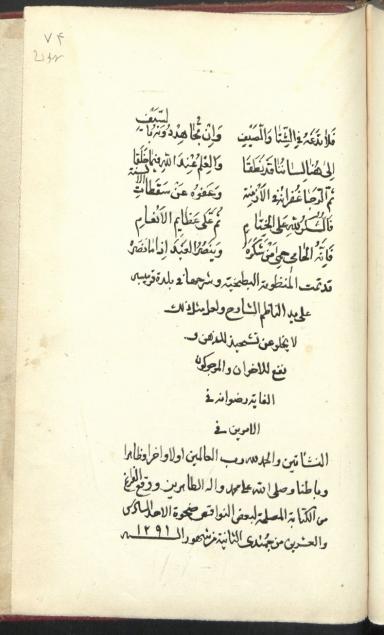 ٧۴
فلا تدعه في الشتا والصيف وان تجاهد دونه بالسيف
الى هنا لساننا قد نطقا والعلم عند الله فيما خلقا
ثم الرجا غفرانه في الازمنة وعفوه عن سقطات الالسنة
فالشكر لله على الختام ثم على عظايم الانعام
فانه الحامي حمى من شكره وينصر العبد اذا ما
قد تمت المنظومة البطيخية وشرحها في بلدة
على يد الناظم الشارح ولعل مثل ذلك
لا يخلو عن تشحيذ للذهن و
نفع للاخوان والمرجو كون
الغاية رضوانه في
الامرين في
النشأتين والحمد لله رب العالمين اولا واخرا وظاهرا
وباطنا وصلى الله على محمد واله الطاهرين ووقع الفراغ
من الكتابة المصلحة لبعض النواقص ضحوة الاحد السادس
والعشرين من جمادى الثانية من شهور ١٢٩١